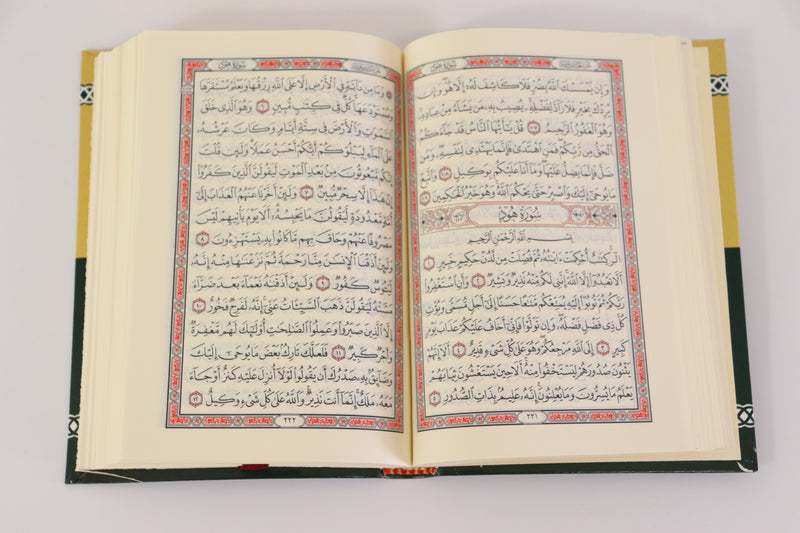 سُورَةُ هُودٍ
وَإِن يَمْسَسْكَ ٱللَّهُ بِضُرٍّ فَلَا كَاشِفَ لَهُۥٓ إِلَّا هُوَۖ وَإِن
يُرِدْكَ بِخَيْرٍ فَلَا رَآدَّ لِفَضْلِهِۦۚ يُصِيبُ بِهِۦ مَن يَشَآءُ مِنْ عِبَادِهِۦۚ
وَهُوَ ٱلْغَفُورُ ٱلرَّحِيمُ ١٠٧ قُلْ يَٰٓأَيُّهَا ٱلنَّاسُ قَدْ جَآءَكُمُ
ٱلْحَقُّ مِن رَّبِّكُمْۖ فَمَنِ ٱهْتَدَىٰ فَإِنَّمَا يَهْتَدِى لِنَفْسِهِۦۖ وَمَن
ضَلَّ فَإِنَّمَا يَضِلُّ عَلَيْهَاۖ وَمَآ أَنَا۠ عَلَيْكُم بِوَكِيلٍ ١٠٨ وَٱتَّبِعْ
مَا يُوحَىٰٓ إِلَيْكَ وَٱصْبِرْ حَتَّىٰ يَحْكُمَ ٱللَّهُۚ وَهُوَ خَيْرُ ٱلْحَٰكِمِينَ ١٠٩
سُورَةُ هُودٍ
بِسْمِ ٱللَّهِ ٱلرَّحْمَٰنِ ٱلرَّحِيمِ
الٓرۚ كِتَٰبٌ أُحْكِمَتْ ءَايَٰتُهُۥ ثُمَّ فُصِّلَتْ مِن لَّدُنْ حَكِيمٍ خَبِيرٍ ١
أَلَّا تَعْبُدُوٓا۟ إِلَّا ٱللَّهَۚ إِنَّنِى لَكُم مِّنْهُ نَذِيرٌ وَبَشِيرٌ ٢ وَأَنِ ٱسْتَغْفِرُوا۟
رَبَّكُمْ ثُمَّ تُوبُوٓا۟ إِلَيْهِ يُمَتِّعْكُم مَّتَٰعًا حَسَنًا إِلَىٰٓ أَجَلٍ مُّسَمًّى وَيُؤْتِ
كُلَّ ذِى فَضْلٍ فَضْلَهُۥۖ وَإِن تَوَلَّوْا۟ فَإِنِّىٓ أَخَافُ عَلَيْكُمْ عَذَابَ يَوْمٍ
كَبِيرٍ ٣ إِلَى ٱللَّهِ مَرْجِعُكُمْۖ وَهُوَ عَلَىٰ كُلِّ شَىْءٍ قَدِيرٌ ٤ أَلَآ إِنَّهُمْ
يَثْنُونَ صُدُورَهُمْ لِيَسْتَخْفُوا۟ مِنْهُۚ أَلَا حِينَ يَسْتَغْشُونَ ثِيَابَهُمْ
يَعْلَمُ مَا يُسِرُّونَ وَمَا يُعْلِنُونَۚ إِنَّهُۥ عَلِيمٌۢ بِذَاتِ ٱلصُّدُورِ ٥
٢٢١
سُورَةُ هُودٍ
وَمَا مِن دَآبَّةٍ فِى ٱلْأَرْضِ إِلَّا عَلَى ٱللَّهِ رِزْقُهَا وَيَعْلَمُ مُسْتَقَرَّهَا
وَمُسْتَوْدَعَهَاۚ كُلٌّ فِى كِتَٰبٍ مُّبِينٍ ٦ وَهُوَ ٱلَّذِى خَلَقَ
ٱلسَّمَٰوَٰتِ وَٱلْأَرْضَ فِى سِتَّةِ أَيَّامٍ وَكَانَ عَرْشُهُۥ
عَلَى ٱلْمَآءِ لِيَبْلُوَكُمْ أَيُّكُمْ أَحْسَنُ عَمَلًاۗ وَلَئِن قُلْتَ
إِنَّكُم مَّبْعُوثُونَ مِنۢ بَعْدِ ٱلْمَوْتِ لَيَقُولَنَّ ٱلَّذِينَ كَفَرُوٓا۟
إِنْ هَٰذَآ إِلَّا سِحْرٌ مُّبِينٌ ٧ وَلَئِنْ أَخَّرْنَا عَنْهُمُ ٱلْعَذَابَ إِلَىٰٓ
أُمَّةٍ مَّعْدُودَةٍ لَّيَقُولُنَّ مَا يَحْبِسُهُۥٓۗ أَلَا يَوْمَ يَأْتِيهِمْ لَيْسَ
مَصْرُوفًا عَنْهُمْ وَحَاقَ بِهِم مَّا كَانُوا۟ بِهِۦ يَسْتَهْزِءُونَ ٨
وَلَئِنْ أَذَقْنَا ٱلْإِنسَٰنَ مِنَّا رَحْمَةً ثُمَّ نَزَعْنَٰهَا مِنْهُ إِنَّهُۥ
لَيَـُٔوسٌ كَفُورٌ ٩ وَلَئِنْ أَذَقْنَٰهُ نَعْمَآءَ بَعْدَ ضَرَّآءَ
مَسَّتْهُ لَيَقُولَنَّ ذَهَبَ ٱلسَّيِّـَٔاتُ عَنِّىٓۚ إِنَّهُۥ لَفَرِحٌ فَخُورٌ ١٠
إِلَّا ٱلَّذِينَ صَبَرُوا۟ وَعَمِلُوا۟ ٱلصَّٰلِحَٰتِ أُو۟لَٰٓئِكَ لَهُم مَّغْفِرَةٌ
وَأَجْرٌ كَبِيرٌ ١١ فَلَعَلَّكَ تَارِكٌۢ بَعْضَ مَا يُوحَىٰٓ إِلَيْكَ
وَضَآئِقٌۢ بِهِۦ صَدْرُكَ أَن يَقُولُوا۟ لَوْلَآ أُنزِلَ عَلَيْهِ كَنزٌ أَوْ جَآءَ
مَعَهُۥ مَلَكٌۚ إِنَّمَآ أَنتَ نَذِيرٌۚ وَٱللَّهُ عَلَىٰ كُلِّ شَىْءٍ وَكِيلٌ ١٢
٢٢٢